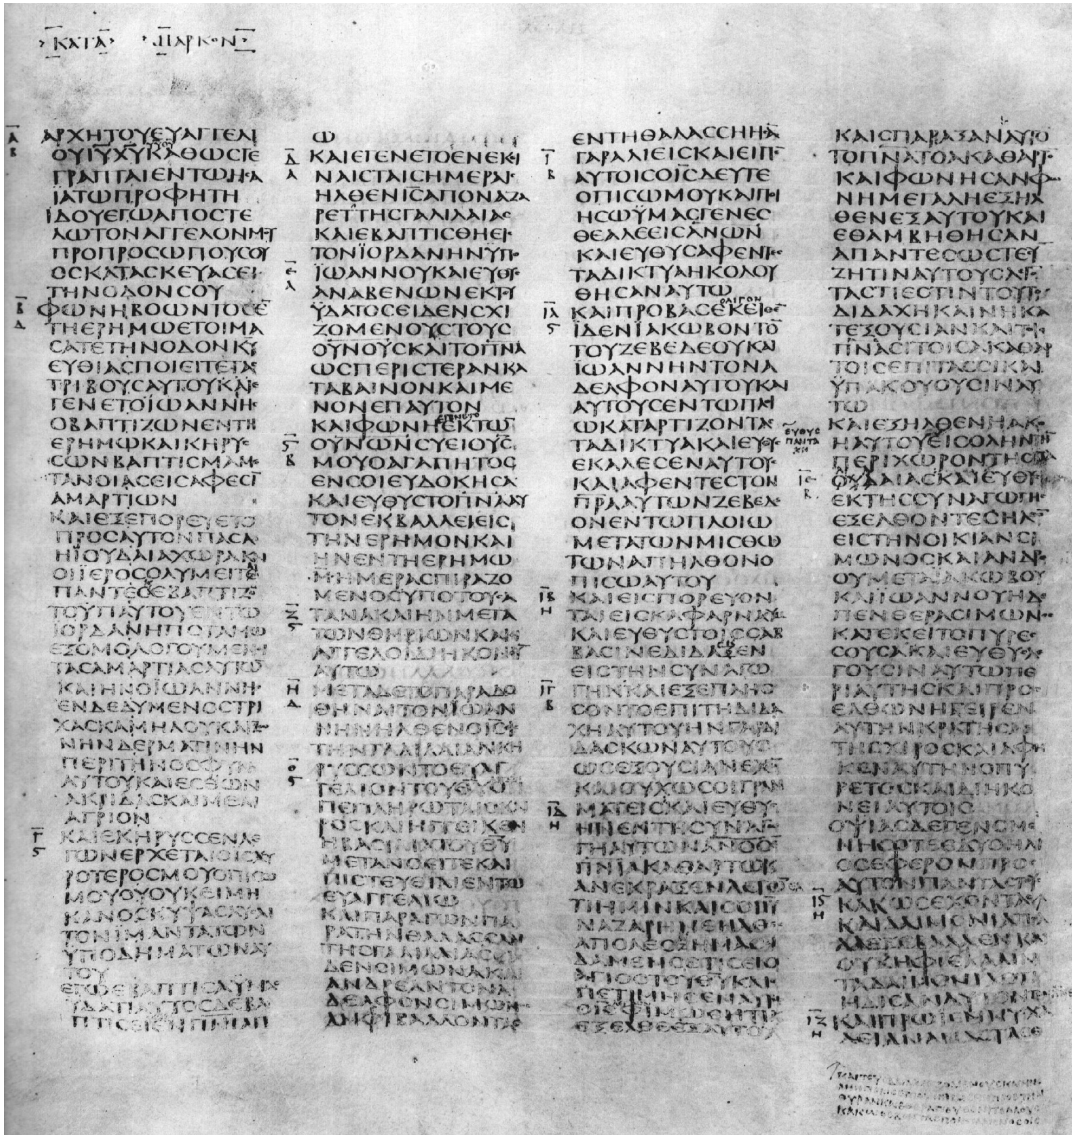 ΚΑΤΑ ΜΑΡΚΟΝ
ΑΡΧΗ ΤΟΥ ΕΥΑΓΓΕΛΙ
ΟΥ ΙΥ ΧΥ ΚΑΘΩϹ ΓΕ
ΓΡΑΠΤΑΙ ΕΝ ΤΩ ΗϹΑ
ΪΑ ΤΩ ΠΡΟΦΗΤΗ
ΪΔΟΥ ΕΓΩ ΑΠΟϹΤΕ
ΛΩ ΤΟΝ ΑΓΓΕΛΟΝ ΜΟΥ
ΠΡΟ ΠΡΟϹΩΠΟΥ ϹΟΥ
ΟϹ ΚΑΤΑϹΚΕΥΑϹΕΙ
ΤΗΝ ΟΔΟΝ ϹΟΥ
ΦΩΝΗ ΒΟΩΝΤΟϹ Ε
ΤΗ ΕΡΗΜΩ ΕΤΟΙΜΑ
ϹΑΤΕ ΤΗΝ ΟΔΟΝ ΚΥ
ΕΥΘΙΑϹ ΠΟΙΕΙΤΕ ΤΑ
ΤΡΙΒΟΥϹ ΑΥΤΟΥ ΚΑΙ
ΓΕΝΕΤΟ ΪΩΑΝΝΗ
Ο ΒΑΠΤΙΖΩΝ ΕΝ ΤΗ
ΕΡΗΜΩ ΚΑΙ ΚΗΡΥ
ϹϹΩΝ ΒΑΠΤΙϹΜΑ Μ
ΤΑΝΟΙΑϹ ΕΙϹ ΑΦΕϹΙ
ΑΜΑΡΤΙΩΝ
ΚΑΙ ΕΞΕΠΟΡΕΥΕΤΟ
ΠΡΟϹ ΑΥΤΟΝ ΠΑϹΑ
Η ΪΟΥΔΑΙΑ ΧΩΡΑ ΚΑΙ
ΟΙ ΪΕΡΟϹΟΛΥΜΕΙΤΕ
ΠΑΝΤΕϹ ΕΒΑΠΤΙΖ
ΤΟ ΫΠ ΑΥΤΟΥ ΕΝ ΤΩ
ΪΟΡΔΑΝΗ ΠΟΤΑΜΩ
ΕΞΟΜΟΛΟΓΟΥΜΕΝΟΙ
ΤΑϹ ΑΜΑΡΤΙΑϹ ΑΥΤΩ
ΚΑΙ ΗΝ Ο ΪΩΑΝΝΗ
ΕΝΔΕΔΥΜΕΝΟϹ ΤΡΙ
ΧΑϹ ΚΑΜΗΛΟΥ ΚΑΙ ΖΩ
ΝΗΝ ΔΕΡΜΑΤΙΝΗΝ
ΠΕΡΙ ΤΗΝ ΟϹΦΥΝ
ΑΥΤΟΥ ΚΑΙ ΕϹΘΩΝ
ΑΚΡΙΔΑϹ ΚΑΙ ΜΕΛΙ
ΑΓΡΙΟΝ
ΚΑΙ ΕΚΗΡΥϹϹΕΝ ΛΕ
ΓΩΝ ΕΡΧΕΤΑΙ Ο ΙϹΧΥ
ΡΟΤΕΡΟϹ ΜΟΥ ΟΠΙϹΩ
ΜΟΥ ΟΥ ΟΥΚ ΕΙΜΙ Ϊ
ΚΑΝΟϹ ΚΥΨΑϹ ΛΥϹΑΙ
ΤΟΝ ΪΜΑΝΤΑ ΤΩΝ
ΫΠΟΔΗΜΑΤΩΝ ΑΥ
ΤΟΥ
ΕΓΩ ΕΒΑΠΤΙϹΑ ΫΜΑϹ
ΫΔΑΤΙ ΑΥΤΟϹ ΔΕ ΒΑ
ΠΤΙϹΕΙ ΕΝ ΠΝΙ ΑΓΙ
Ω
ΚΑΙ ΕΓΕΝΕΤΟ ΕΝ ΕΚΙ
ΝΑΙϹ ΤΑΙϹ ΗΜΕΡΑΙϹ
ΗΛΘΕΝ ΙϹ ΑΠΟ ΝΑΖΑ
ΡΕΤ ΤΗϹ ΓΑΛΙΛΑΙΑϹ
ΚΑΙ ΕΒΑΠΤΙϹΘΗ ΕΙϹ
ΤΟΝ ΪΟΡΔΑΝΗΝ ΫΠ
ΪΩΑΝΝΟΥ ΚΑΙ ΕΥΘΥϹ
ΑΝΑΒΕΝΩΝ ΕΚ ΤΟΥ
ΫΔΑΤΟϹ ΕΙΔΕΝ ϹΧΙ
ΖΟΜΕΝΟΥϹ ΤΟΥϹ
ΟΥΝΟΥϹ ΚΑΙ ΤΟ ΠΝΑ
ΩϹ ΠΕΡΙϹΤΕΡΑΝ ΚΑ
ΤΑΒΑΙΝΟΝ ΚΑΙ ΜΕ
ΝΟΝ ΕΠ ΑΥΤΟΝ
ΚΑΙ ΦΩΝΗ ΕΓΕΝΕΤΟ ΕΚ ΤΩ
ΟΥΝΩΝ ϹΥ ΕΙ Ο ΥϹ
ΜΟΥ Ο ΑΓΑΠΗΤΟϹ
ΕΝ ϹΟΙ ΕΥΔΟΚΗϹΑ
ΚΑΙ ΕΥΘΥϹ ΤΟ ΠΝΑ ΑΥ
ΤΟΝ ΕΚΒΑΛΛΕΙ ΕΙϹ
ΤΗΝ ΕΡΗΜΟΝ ΚΑΙ
ΗΝ ΕΝ ΤΗ ΕΡΗΜΩ
Μ ΗΜΕΡΑϹ ΠΙΡΑΖΟ
ΜΕΝΟϹ ΫΠΟ ΤΟΥ ϹΑ
ΤΑΝΑ ΚΑΙ ΗΝ ΜΕΤΑ
ΤΩΝ ΘΗΡΙΩΝ ΚΑΙ ΟΙ
ΑΓΓΕΛΟΙ ΔΙΗΚΟΝΟΥ
ΑΥΤΩ
ΜΕΤΑ ΔΕ ΤΟ ΠΑΡΑΔΟ
ΘΗΝΑΙ ΤΟΝ ΪΩΑΝ
ΝΗΝ ΗΛΘΕΝ Ο ΙϹ ΕΙϹ
ΤΗΝ ΓΑΛΙΛΑΙΑΝ ΚΗ
ΡΥϹϹΩΝ ΤΟ ΕΥΑΓ
ΓΕΛΙΟΝ ΤΟΥ ΘΥ ΟΤΙ
ΠΕΠΛΗΡΩΤΑΙ Ο ΚΑΙ
ΡΟϹ ΚΑΙ ΗΓΓΕΙΚΕΝ
Η ΒΑϹΙΛΙΑ ΤΟΥ ΘΥ
ΜΕΤΑΝΟΕΙΤΕ ΚΑΙ
ΠΙϹΤΕΥΕΤΕ ΕΝ ΤΩ
ΕΥΑΓΓΕΛΙΩ
ΚΑΙ ΠΑΡΑΓΩΝ ΠΑ
ΡΑ ΤΗΝ ΘΑΛΑϹϹΑΝ
ΤΗϹ ΓΑΛΙΛΑΙΑϹ ΕΙ
ΔΕΝ ϹΙΜΩΝΑ ΚΑΙ
ΑΝΔΡΕΑΝ ΤΟΝ Α
ΔΕΛΦΟΝ ϹΙΜΩΝΟϹ
ΑΜΦΙΒΑΛΛΟΝΤΑϹ
ΕΝ ΤΗ ΘΑΛΑϹϹΗ ΗϹΑ
ΓΑΡ ΑΛΙΕΙϹ ΚΑΙ ΕΙΠΕ
ΑΥΤΟΙϹ Ο ΙϹ ΔΕΥΤΕ
ΟΠΙϹΩ ΜΟΥ ΚΑΙ ΠΟΙ
ΗϹΩ ΫΜΑϹ ΓΕΝΕϹ
ΘΕ ΑΛΕΕΙϹ ΑΝΩΝ
ΚΑΙ ΕΥΘΥϹ ΑΦΕΝΤΕϹ
ΤΑ ΔΙΚΤΥΑ ΗΚΟΛΟΥ
ΘΗϹΑΝ ΑΥΤΩ
ΚΑΙ ΠΡΟΒΑϹ ΟΛΙΓΟΝ ΕΚΕΙΘΕ
ΪΔΕΝ ΪΑΚΩΒΟΝ ΤΟ
ΤΟΥ ΖΕΒΕΔΕΟΥ ΚΑΙ
ΪΩΑΝΝΗΝ ΤΟΝ Α
ΔΕΛΦΟΝ ΑΥΤΟΥ ΚΑΙ
ΑΥΤΟΥϹ ΕΝ ΤΩ ΠΛΟΙ
Ω ΚΑΤΑΡΤΙΖΟΝΤΑϹ
ΤΑ ΔΙΚΤΥΑ ΚΑΙ ΕΥΘΥϹ
ΕΚΑΛΕϹΕΝ ΑΥΤΟΥϹ
ΚΑΙ ΑΦΕΝΤΕϹ ΤΟΝ
ΠΡΑ ΑΥΤΩΝ ΖΕΒΕΔΕ
ΟΝ ΕΝ ΤΩ ΠΛΟΙΩ
ΜΕΤΑ ΤΩΝ ΜΙϹΘΩ
ΤΩΝ ΑΠΗΛΘΟΝ Ο
ΠΙϹΩ ΑΥΤΟΥ
ΚΑΙ ΕΙϹΠΟΡΕΥΟΝ
ΤΑΙ ΕΙϹ ΚΑΦΑΡΝΑΟΥΜ
ΚΑΙ ΕΥΘΥϹ ΤΟΙϹ ϹΑΒ
ΒΑϹΙΝ ΕΔΙΔΑΞΕΝ
ΕΙϹ ΤΗΝ ϹΥΝΑΓΩ
ΓΗΝ ΚΑΙ ΕΞΕΠΛΗϹ
ϹΟΝΤΟ ΕΠΙ ΤΗ ΔΙΔΑ
ΧΗ ΑΥΤΟΥ ΗΝ ΓΑΡ ΔΙ
ΔΑϹΚΩΝ ΑΥΤΟΥϹ
ΩϹ ΕΞΟΥϹΙΑΝ ΕΧΩ
ΚΑΙ ΟΥΧ ΩϹ ΟΙ ΓΡΑΜ
ΜΑΤΕΙϹ ΚΑΙ ΕΥΘΥϹ
ΗΝ ΕΝ ΤΗ ϹΥΝΑΓΩ
ΓΗ ΑΥΤΩΝ ΑΝΟϹ Ε
ΠΝΙ ΑΚΑΘΑΡΤΩ Κ
ΑΝΕΚΡΑΞΕΝ ΛΕΓΩ
ΤΙ ΗΜΙΝ ΚΑΙ ϹΟΙ ΙΥ
ΝΑΖΑΡΗΝΕ ΗΛΘΕϹ
ΑΠΟΛΕϹΑΙ ΗΜΑϹ ΟΙ
ΔΑΜΕΝ ϹΕ ΤΙϹ ΕΙ Ο
ΑΓΙΟϹ ΤΟΥ ΘΥ ΚΑΙ Ε
ΠΕΤΙΜΗϹΕΝ ΑΥΤΩ
Ο ΙϹ ΦΙΜΩΘΗΤΙ Κ
ΕΞΕΛΘΕ ΕΞ ΑΥΤΟΥ
ΚΑΙ ϹΠΑΡΑΞΑΝ ΑΥΤΟ
ΤΟ ΠΝΑ ΤΟ ΑΚΑΘΑΡΤΟ
ΚΑΙ ΦΩΝΗϹΑΝ ΦΩ
ΝΗ ΜΕΓΑΛΗ ΕΞΗΛ
ΘΕΝ ΕΞ ΑΥΤΟΥ ΚΑΙ
ΕΘΑΜΒΗΘΗϹΑΝ
ΑΠΑΝΤΕϹ ΩϹΤΕ ϹΥ
ΖΗΤΙΝ ΑΥΤΟΥϹ ΛΕΓ
ΤΑϹ ΤΙ ΕϹΤΙΝ ΤΟΥΤΟ
ΔΙΔΑΧΗ ΚΑΙΝΗ ΚΑ
Τ ΕΞΟΥϹΙΑΝ ΚΑΙ ΤΟΙϹ
ΠΝΑϹΙ ΤΟΙϹ ΑΚΑΘΑΡ
ΤΟΙϹ ΕΠΙΤΑϹϹΙ ΚΑΙ
ΫΠΑΚΟΥΟΥϹΙΝ ΑΥ
ΤΩ
ΚΑΙ ΕΞΗΛΘΕΝ Η ΑΚΟ
Η ΑΥΤΟΥ ΕΙϹ ΟΛΗΝ ΤΗ
ΕΥΘΥϹ ΠΑΝΤΑΧΗ
ΠΕΡΙΧΩΡΟΝ ΤΗϹ
ΪΟΥΔΑΙΑϹ ΚΑΙ ΕΥΘΥϹ
ΕΚ ΤΗϹ ϹΥΝΑΓΩΓΗϹ
ΕΞΕΛΘΟΝΤΕϹ ΗΛΘΟ
ΕΙϹ ΤΗΝ ΟΙΚΙΑΝ ϹΙ
ΜΩΝΟϹ ΚΑΙ ΑΝΔΡΕ
ΟΥ ΜΕΤΑ ΪΑΚΩΒΟΥ
ΚΑΙ ΪΩΑΝΝΟΥ Η Δ
ΠΕΝΘΕΡΑ ϹΙΜΩΝΟϹ
ΚΑΤΕΚΕΙΤΟ ΠΥΡΕϹ
ϹΟΥϹΑ ΚΑΙ ΕΥΘΥϹ ΛΕ
ΓΟΥϹΙΝ ΑΥΤΩ ΠΕ
ΡΙ ΑΥΤΗϹ ΚΑΙ ΠΡΟϹ
ΕΛΘΩΝ ΗΓΕΙΡΕΝ
ΑΥΤΗΝ ΚΡΑΤΗϹΑϹ
ΤΗϹ ΧΙΡΟϹ ΚΑΙ ΑΦΗ
ΚΕΝ ΑΥΤΗΝ Ο ΠΥ
ΡΕΤΟϹ ΚΑΙ ΔΙΗΚΟ
ΝΕΙ ΑΥΤΟΙϹ
ΟΨΙΑϹ ΔΕ ΓΕΝΟΜΕ
ΝΗϹ ΟΤΕ ΕΔΥ Ο ΗΛΙ
ΟϹ ΕΦΕΡΟΝ ΠΡΟϹ
ΑΥΤΟΝ ΠΑΝΤΑϹ ΤΟΥϹ
ΚΑΚΩϹ ΕΧΟΝΤΑϹ
ΚΑΙ ΔΑΙΜΟΝΙΑ ΠΟΛ
ΛΑ ΕΞΕΒΑΛΛΕΝ ΚΑΙ
ΟΥΚ ΗΦΙΕ ΛΑΛΙΝ
ΤΑ ΔΑΙΜΟΝΙΑ ΟΤΙ
ΗΔΙϹΑΝ ΑΥΤΟΝ
ΚΑΙ ΠΡΩΙ ΕΝΝΥΧΑ
ΛΕΙΑΝ ΑΝΑϹΤΑϹ Ε